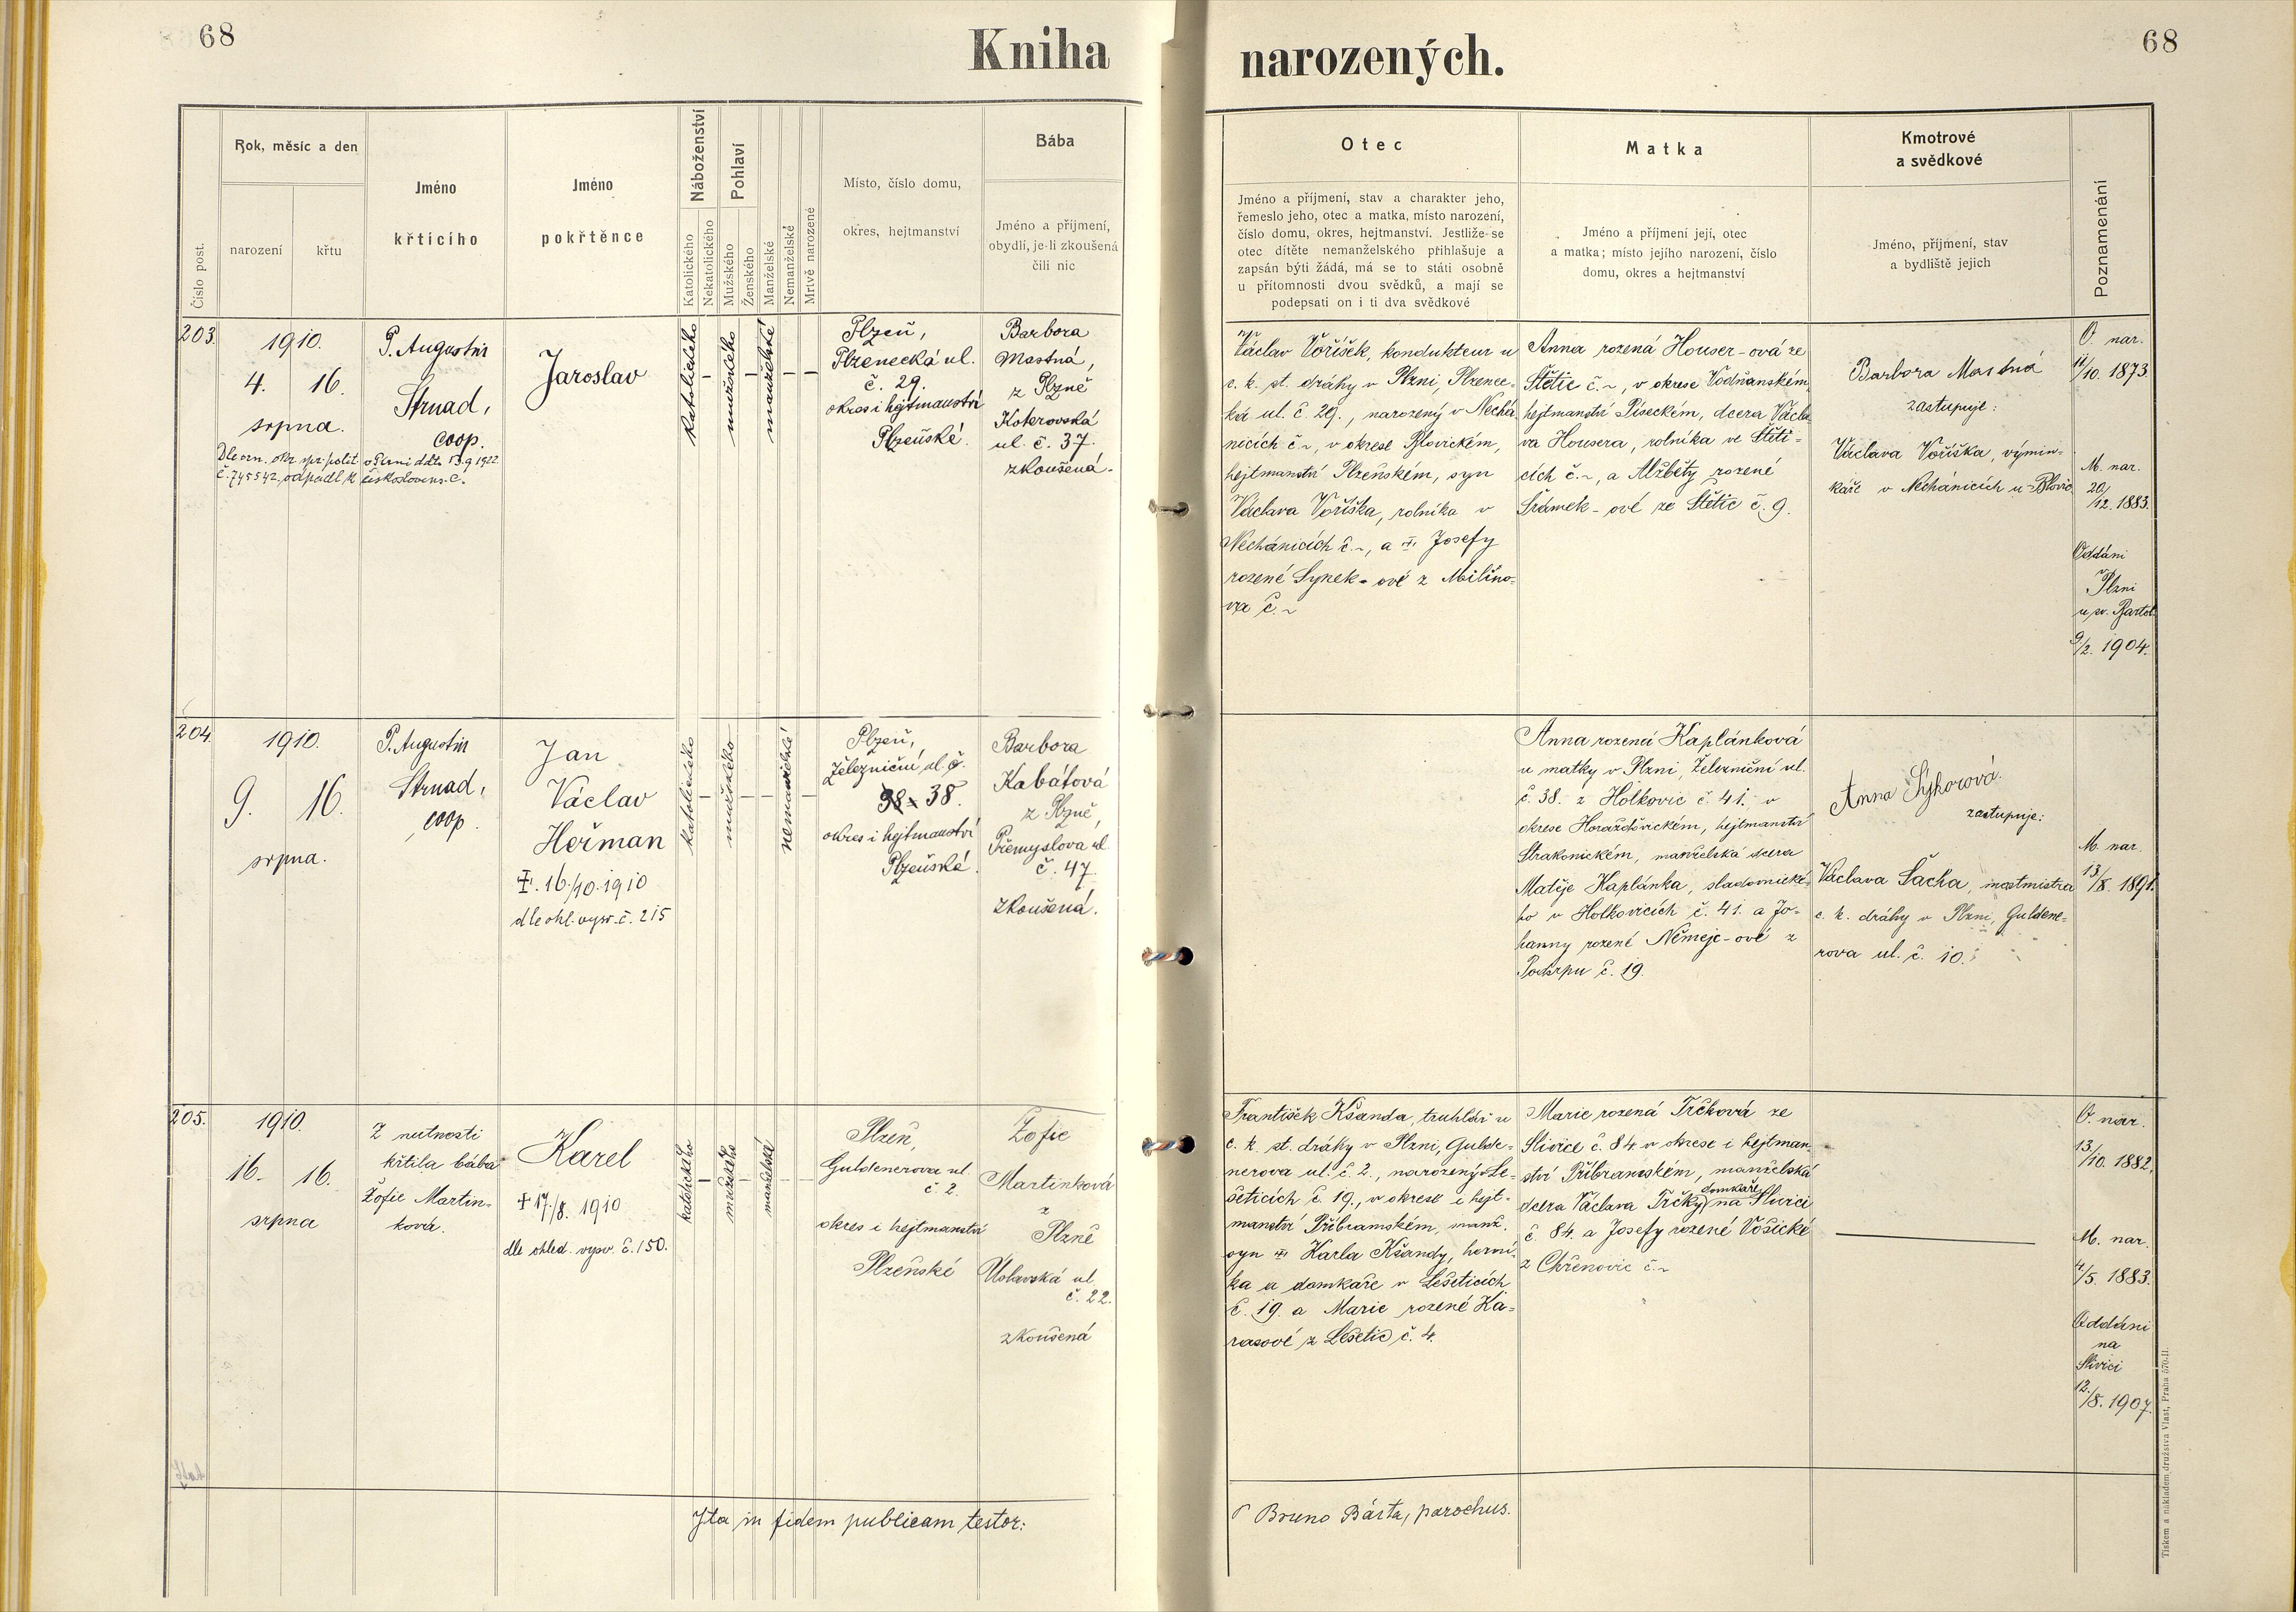 68
Kniha
narozených.
68
Číslo post.
Rok, měsíc a den
narození
křtu
Jméno
křtícího
Jméno
pokřtěnce
Náboženství
Katolického
Nekatolického
Pohlaví
Mužského
Ženského
Manželské
Nemanželské
Mrtvě narozené
Místo, číslo domu,
okres, hejtmanství
Bába
Jméno a příjmení,
obydlí, je-li zkoušená
čili nic
Otec
Jméno a příjmení, stav a charakter jeho,
řemeslo jeho, otec a matka, místo narození,
číslo domu, okres, hejtmanství. Jestliže-se
otec dítěte nemanželského přihlašuje a
zapsán býti žádá, má se to státi osobně
u přítomnosti dvou svědků, a mají se
podepsati on i ti dva svědkové
Matka
Jméno a příjmení její, otec
a matka; místo jejího narození, číslo
domu, okres a hejtmanství
Kmotrové
a svědkové
Jméno, příjmení, stav
a bydliště jejich
Poznamenání
203.
1910.
4. 16.
srpna.
Dle ozn. okr. spr. polit. v Plzni ddto 13.9.1922
č. 745542, odpadl k českosloven. c.
P. Augustin
Strnad,
coop.
Jaroslav
katolického
–
mužského
–
manželské
–
–
Plzeň,
Plzenecká ul.
č. 29.
okres i hejtmanství
Plzeňské.
Barbora
Mastná,
z Plzně
Koterovská
ul. č. 37.
zkoušená.
Václav Voříšek, kondukteur u
c. k. st. dráhy v Plzni, Plzenec-
ká ul. č. 29., narozený v Nechá
nicích č. ~, v okrese Blovickém,
hejtmanství Plzeňském, syn
Václava Voříška, rolníka v
Nechánicích č. ~, a Josefy
rozené Synek-ové z Milíno-
va č. ~
Anna rozená Houser-ová ze
Štětic č. ~, v okrese Vodňanském
hejtmanství Píseckém, dcera Václa
va Housera, rolníka ve Štěti-
cích č. ~, a Alžběty rozené
Šrámek-ové ze Štětic č. 9.
Barbora Mastná
zastupuje:
Václava Voříška, výmin-
káře v Nechánicích u Blovic
O. nar.
11/10. 1873.
M. nar.
20/12. 1883.
Oddáni
v Plzni
u sv. Bartol.
9/2. 1904.
204.
1910.
9. 16.
srpna.
P. Augustin
Strnad,
coop.
Jan
Václav
Heřman
‡. 16./10. 1910
dle ohl. vysv. č. 215
katolického
–
mužského
–
–
nemanželské
–
Plzeň,
Železniční ul. č.
38.
okres i hejtmanství
Plzeňské.
Barbora
Kabátová
z Plzně,
Přemyslova ul.
č. 47
zkoušená.
Anna rozená Kaplánková
u matky v Plzni, Železniční ul.
č. 38. z Holkovic č. 41. v
okrese Horažďovickém, hejtmanství
Strakonickém, manželská dcera
Matěje Kaplánka, sladovnické-
ho v Holkovicích č. 41. a Jo-
hanny rozené Němejc-ové z
Podsrpu č. 19.
Anna Sýkorová.
zastupuje:
Václava Šacha, mostmistra
c. k. dráhy v Plzni, Guldene-
rova ul. č. 10.
M. nar.
13/8. 1891.
205.
1910.
16. 16.
srpna
Z nutnosti
křtila bába
Žofie Martin-
ková.
Karel
† 17./8. 1910
dle ohled. vysv. č. 150.
katolického
–
mužského
–
manželské
–
–
Plzeň,
Guldenerova ul.
č. 2.
okres i hejtmanství
Plzeňské
Žofie
Martinková
z
Plzně
Úslavská ul.
č. 22.
zkoušená
František Kšanda, truhlář u
c. k. st. dráhy v Plzni, Gulde-
nerova ul. č. 2., narozený v Le-
šeticích č. 19., v okrese i hejt-
manství Příbramském, manž.
syn Karla Kšandy, horní-
ka a domkáře v Lešeticích
č. 19. a Marie rozené Ka-
rasové z Lešetic č. 4.
Marie rozená Trčková ze
Slivice č. 84. v okrese i hejtman-
ství Příbramském, manželská
dcera Václava Trčky, domkáře na Slivici
č. 84. a Josefy rozené Vošické
z Chřenovic č. ~
O. nar.
13/10. 1882.
M. nar.
4./5. 1883.
Oddáni
na
Slivici
12./8. 1907.
Ita in fidem publicam testor:
P Bruno Bárta, parochus.
Tiskem a nákladem družstva Vlast, Praha 570-II.